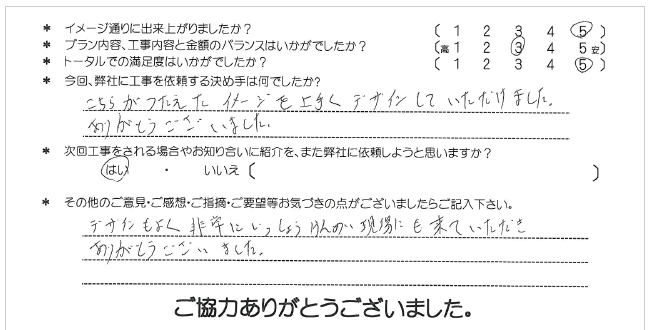 * イメージ通りに出来上がりましたか？ 〔 1 2 3 4 5 〕
* プラン内容、工事内容と金額のバランスはいかがでしたか？ 〔高 1 2 3 4 5 安〕
* トータルでの満足度はいかがでしたか？ 〔 1 2 3 4 5 〕
* 今回、弊社に工事を依頼する決め手は何でしたか?
こちらがつたえたイメージを上手くデザインしていただけました。
ありがとうございました。
* 次回工事をされる場合やお知り合いに紹介を、また弊社に依頼しようと思いますか？
はい ・ いいえ〔 〕
* その他のご意見・ご感想・ご指摘・ご要望等お気づきの点がございましたらご記入下さい。
デザインもよく非常にいっしょうけんめい現場にも来ていただき
ありがとうございました。
ご協力ありがとうございました。